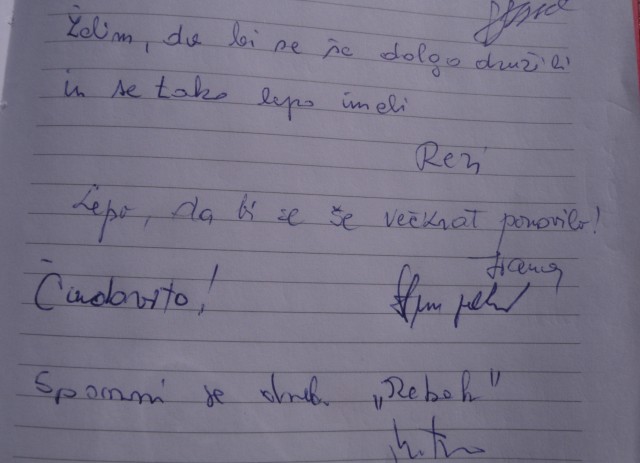 Želim, da bi se še dolgo družili
in se tako lepo imeli
Rezi
Lepo, da bi se še večkrat ponovilo!
Čudovito!
Spomni se "Rebok"